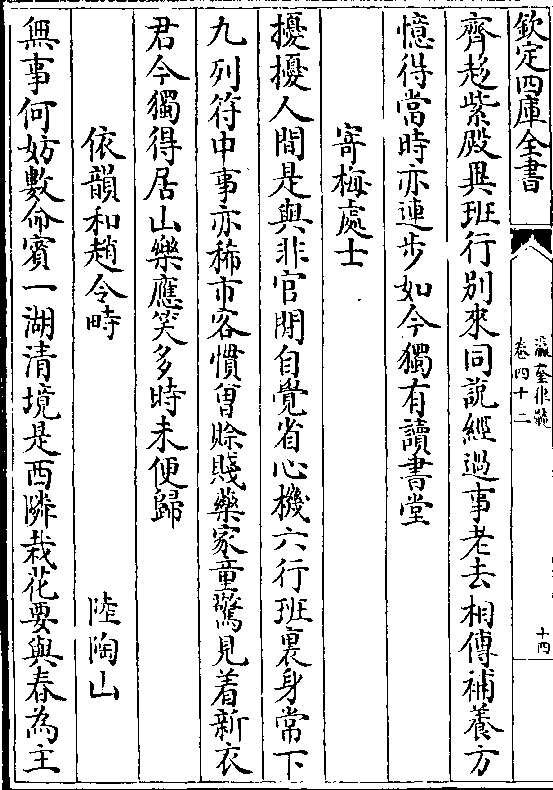 欽定四庫全書
瀛奎律髓
卷四十二
十四
齊趍紫殿異班行別來同說經過事老去相傳補養方
憶得當時亦連步如今獨有讀書堂
寄梅處士
擾擾人間是與非官閒自覺省心機六行班裏身常下
九列符中事亦稀市客慣曾賒賤藥家童驚見着新衣
君今獨得居山樂應笑多時未便歸
依韻和趙令畤 陸陶山
無事何妨數命賓一湖清境是西隣栽花要與春為主